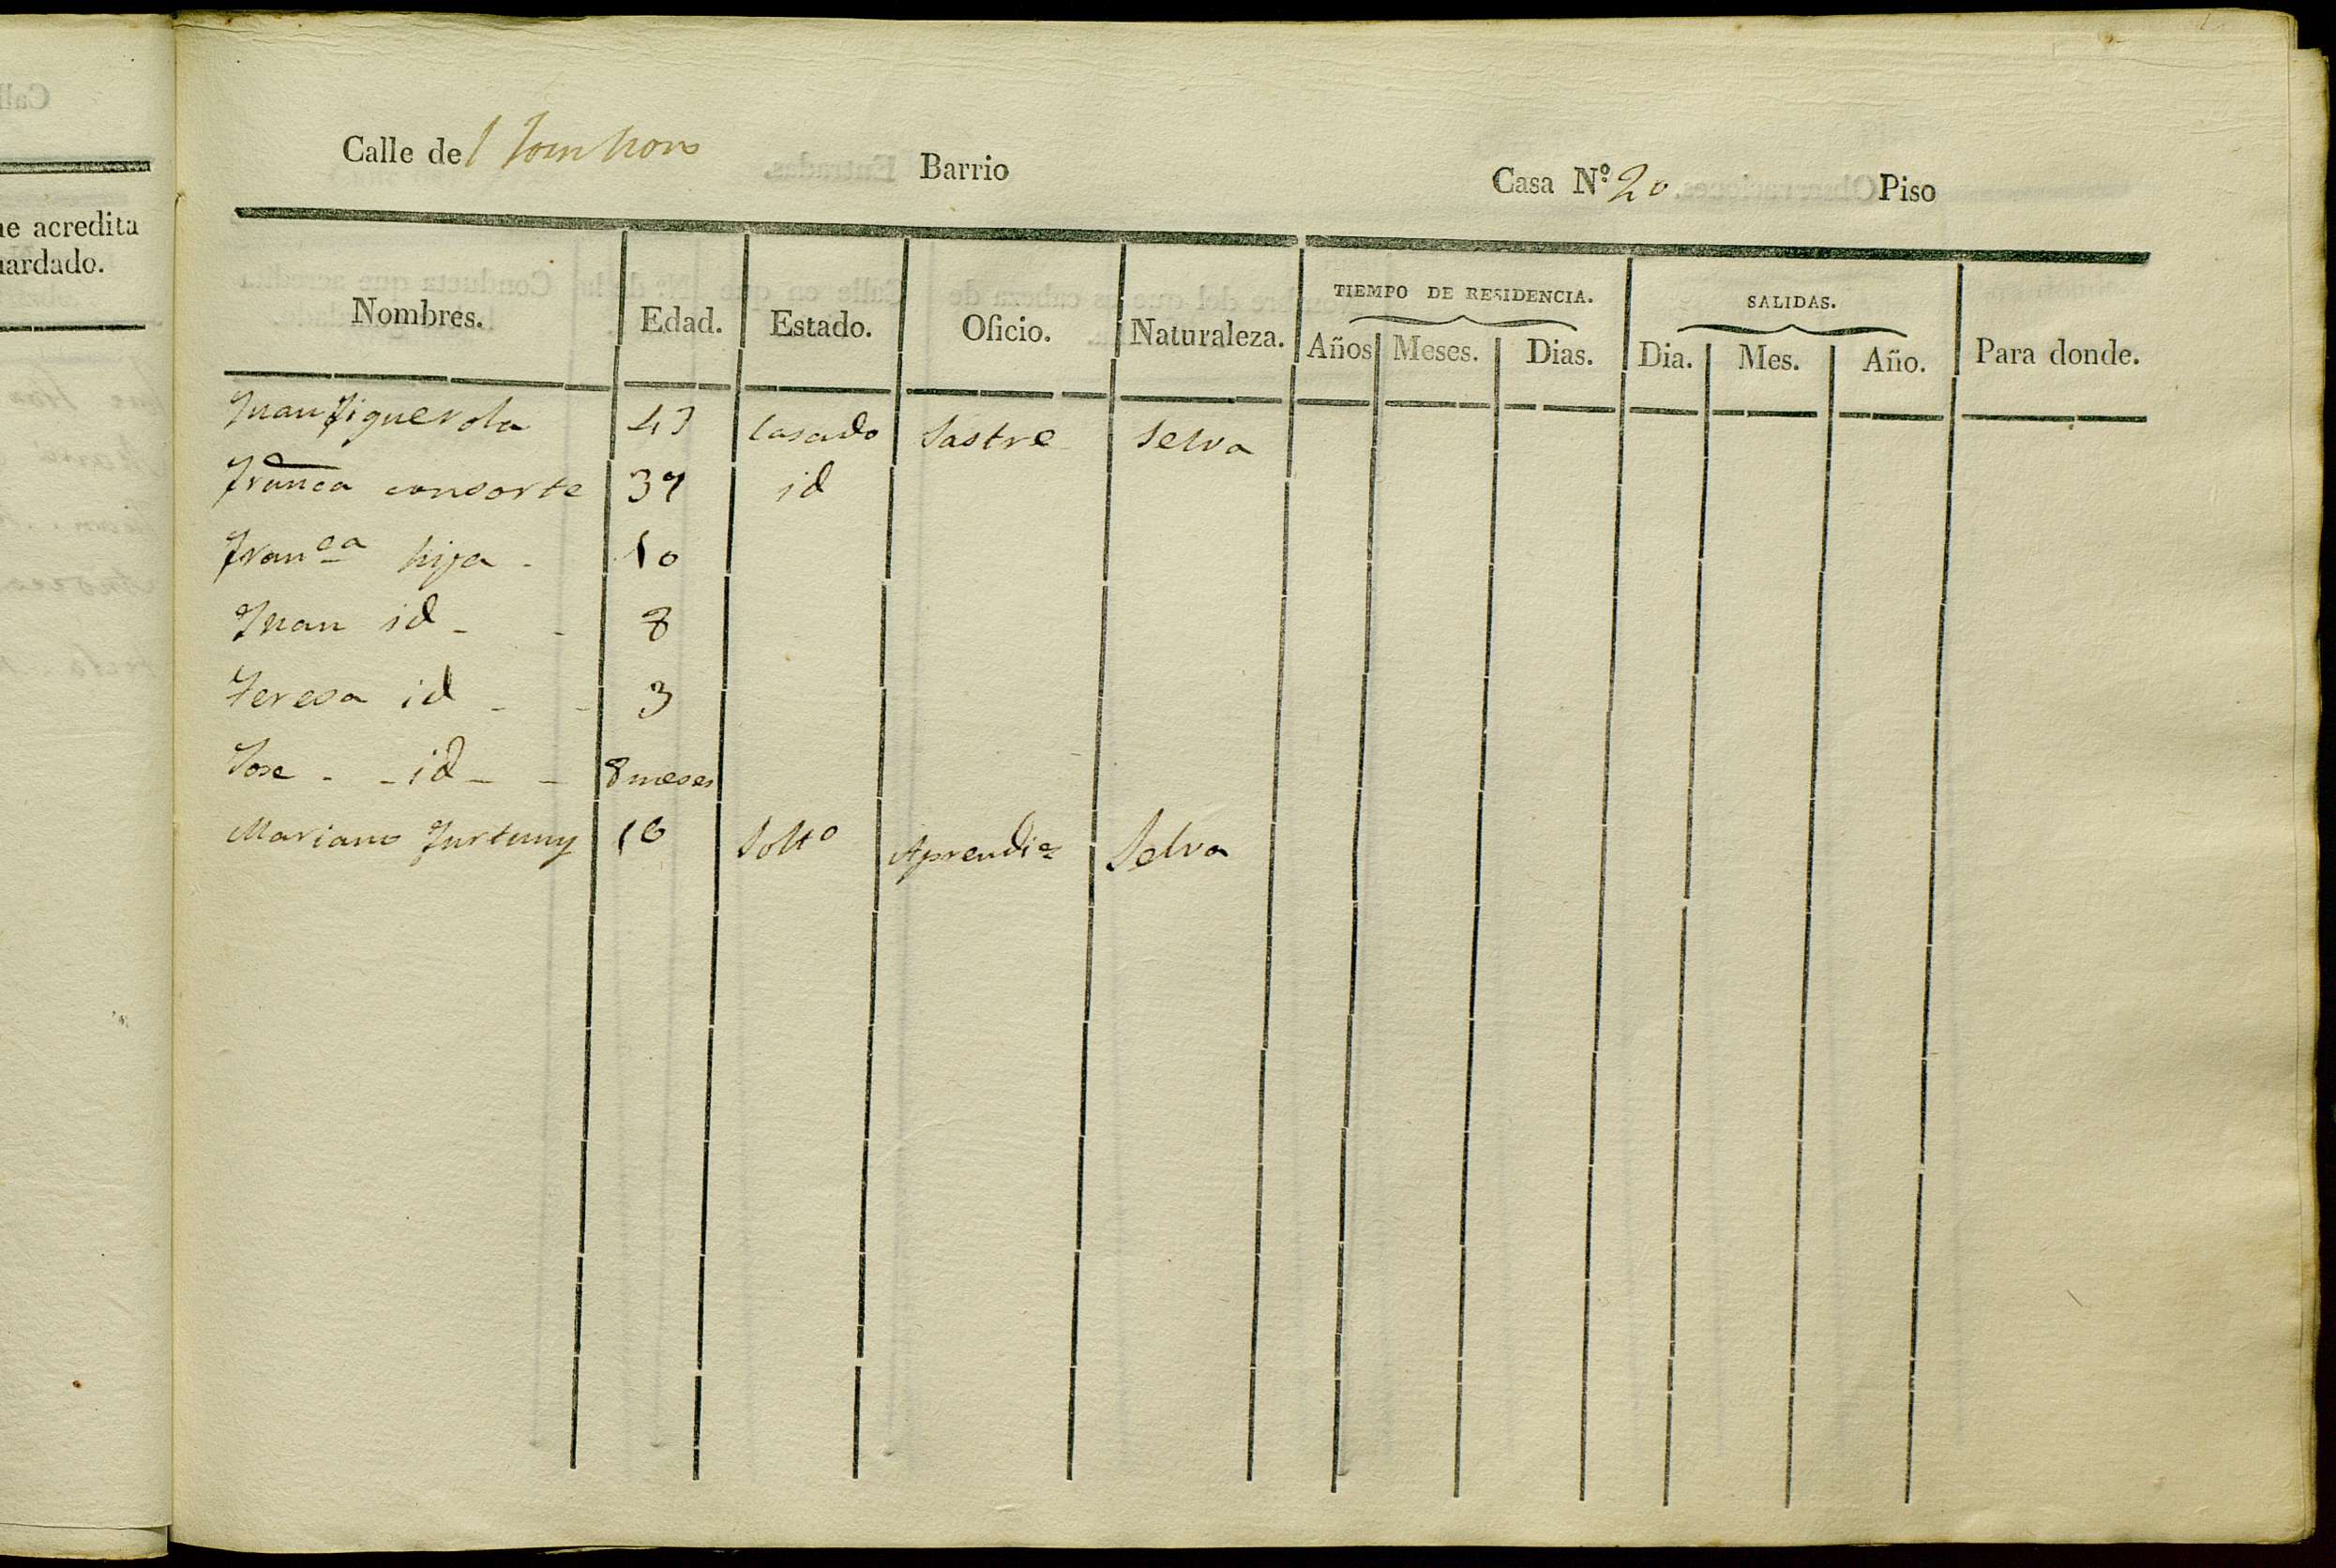 Calle del Barrio Casa N.º 20. Piso
ue acredita
uardado.
Nombres. Edad. Estado. Oficio. Naturaleza. TIEMPO DE RESIDENCIA. SALIDAS. Para donde.
Años Meses. Dias. Dia. Mes. Año.
Juan Figuerola 43 Casado Sastre Selva
Franca consorte 37 id
Franca hija - 10
Juan id - - 8
Teresa id - - 3
Jose - - id - - 8 meses
Mariano Furtuny 16 Solto Aprendiz Selva